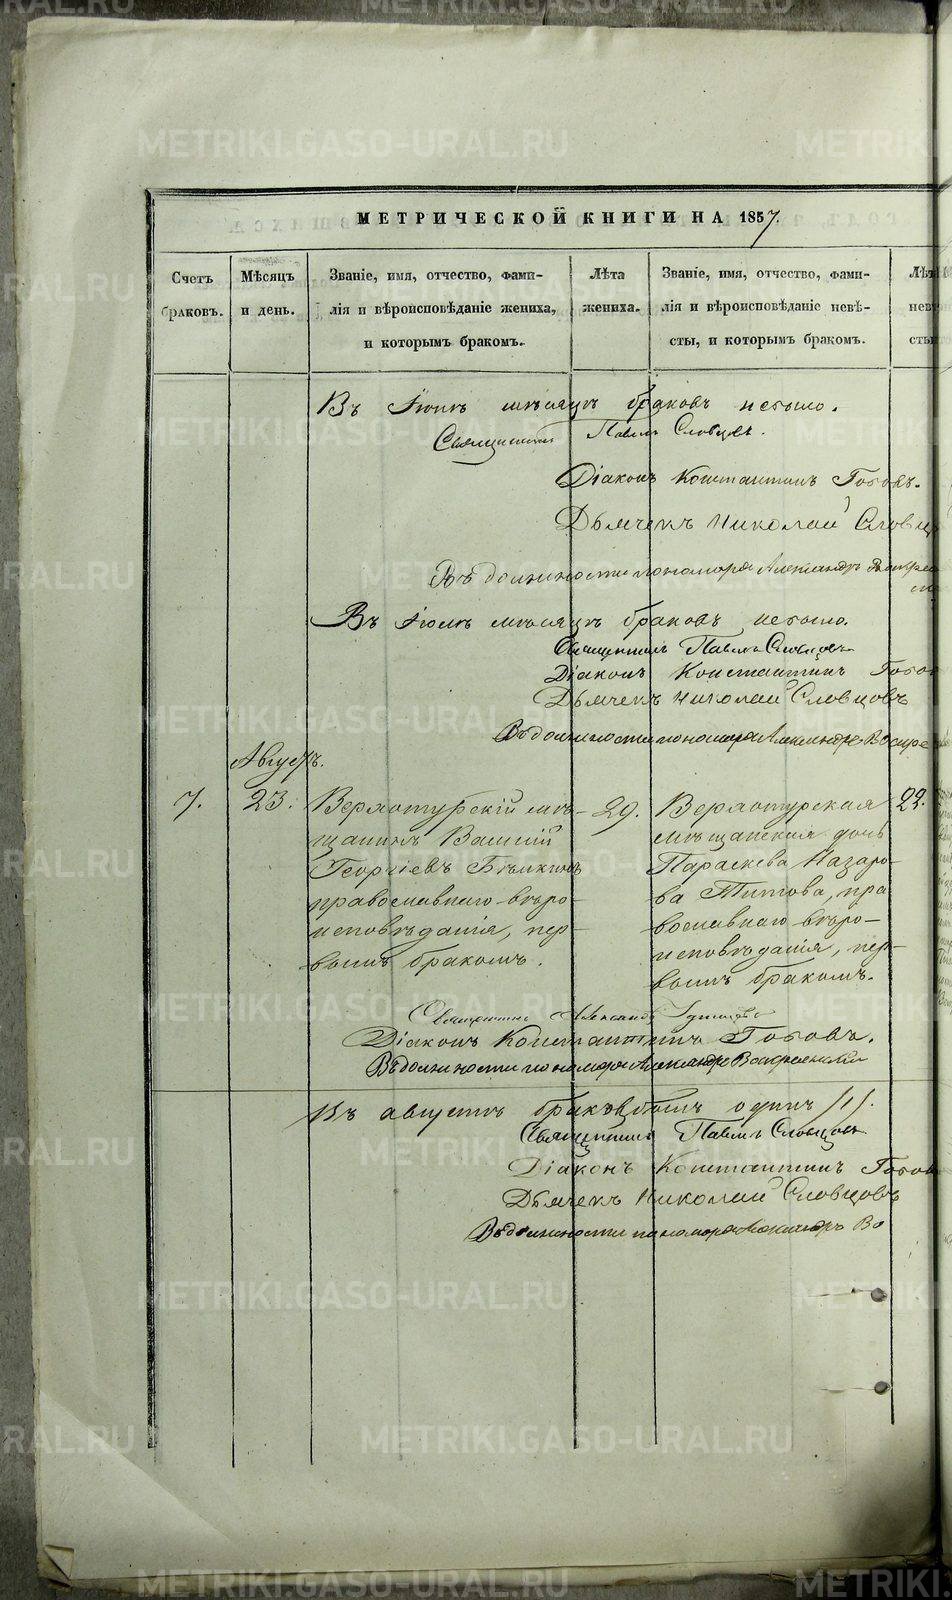 МЕТРИЧЕСКОЙ КНИГИ НА 1857.
Счетъ браковъ.
Мѣсяцъ и день.
Званіе, имя, отчество, фами-
лія и вѣроисповѣданіе жениха,
и которымъ бракомъ.
Лѣта жениха.
Званіе, имя, отчество, фами-
лія и вѣроисповѣданіе невѣ-
сты, и которымъ бракомъ.
Лѣта
нев
сты
Въ Іюнѣ мѣсяцѣ браковъ небыло.
Священникъ Павелъ Словцовъ.
Діаконъ Константинъ Гоговъ.
Дьячекъ Николай Словц
Въ должности пономаря Александръ Воскре
Въ Іюлѣ мѣсяцѣ браковъ небыло.
Священникъ Павелъ Словцовъ
Діаконъ Константинъ
Дьячекъ Николай Словцовъ
Въ должности пономаря Александръ Воскре
Августъ.
7. 23. Верхотурскій мѣ-
щанинъ Василій
Георгіевъ Бѣлкинъ
православнаго вѣро-
исповѣданія, пер-
вымъ бракомъ.
29.
Верхотурская
мѣщанская дочь
Параскева Назаро-
ва Титова, пра
вославнаго вѣро-
исповѣданія, пер-
вымъ бракомъ.
22.
Священникъ Александръ
Діаконъ Константинъ Гоговъ.
Въ должности пономаря Александръ Воскресенскій
Въ августѣ бракъ былъ одинъ /1/.
Священникъ Павелъ Словцовъ
Діаконъ Константинъ
Дьячекъ Николай Словцовъ
Въ должности пономаря Александръ Во
METRIKI.GASO-URAL.RU